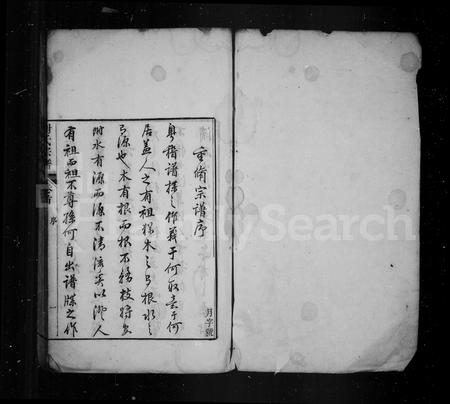 重脩宗譜序
粵稽譜牒之作義于何取意于何
居蓋人之有祖猶木之有根水之
有源也木有根而根不務枝將安
附水有源而源不清流奚以淨人
有祖而祖不尊孫何自出譜牒之作
月字號
序
FamilySearch